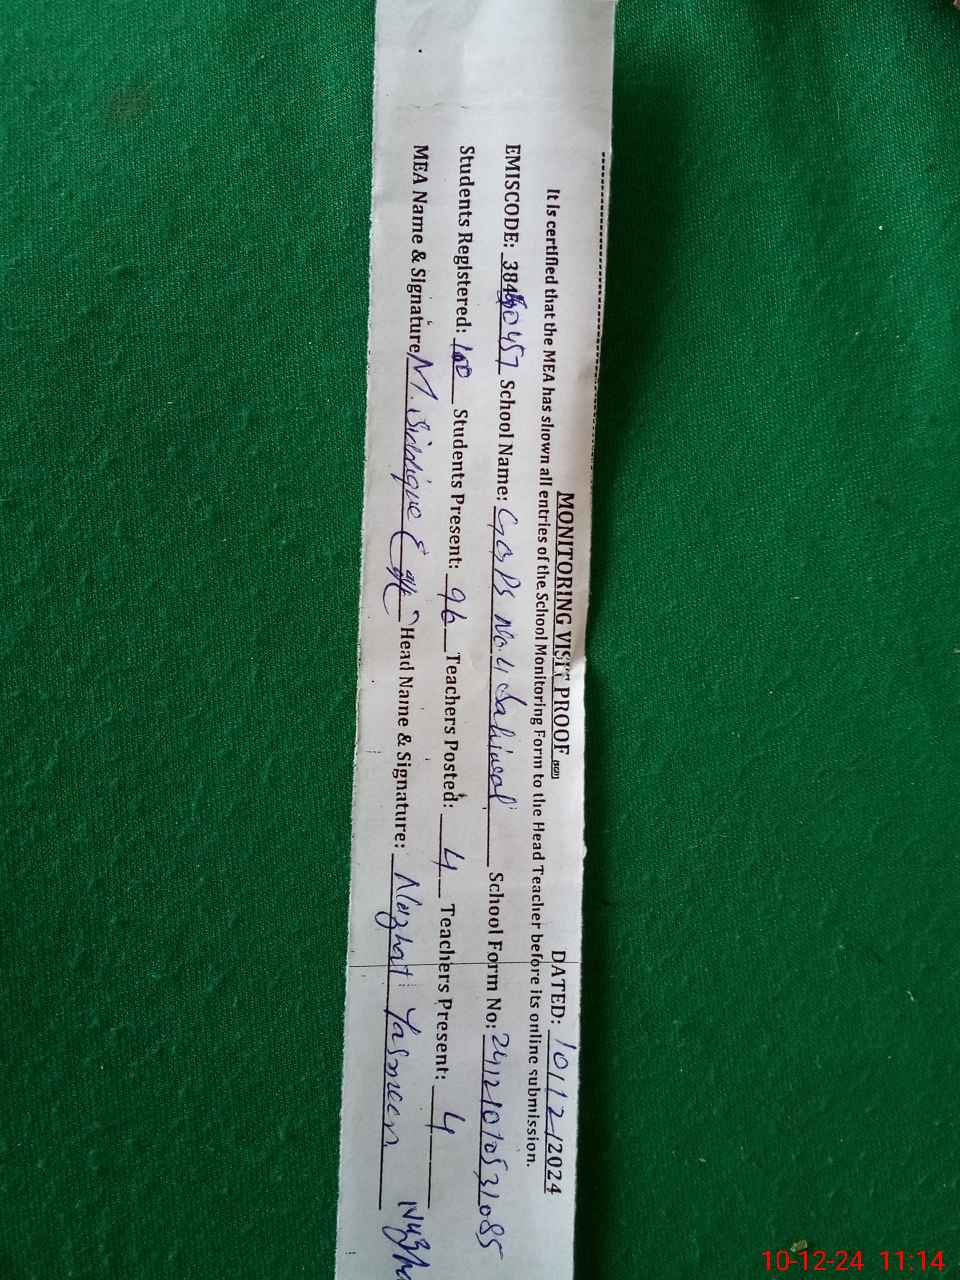 MONITORING VISIT PROOF DATED: 10/12/2024
It is certified that the MEA has shown all entries of the School Monitoring Form to the Head Teacher before its online submission.
EMISCODE: School Name: GGPS No.4 Sahiwal School Form No:
Students Registered: 100 Students Present: 96 Teachers Posted: 4 Teachers Present: 4
MEA Name & Signature M. Siddique Head Name & Signature: Nuzhat Yasmeen
10-12-24 11:14